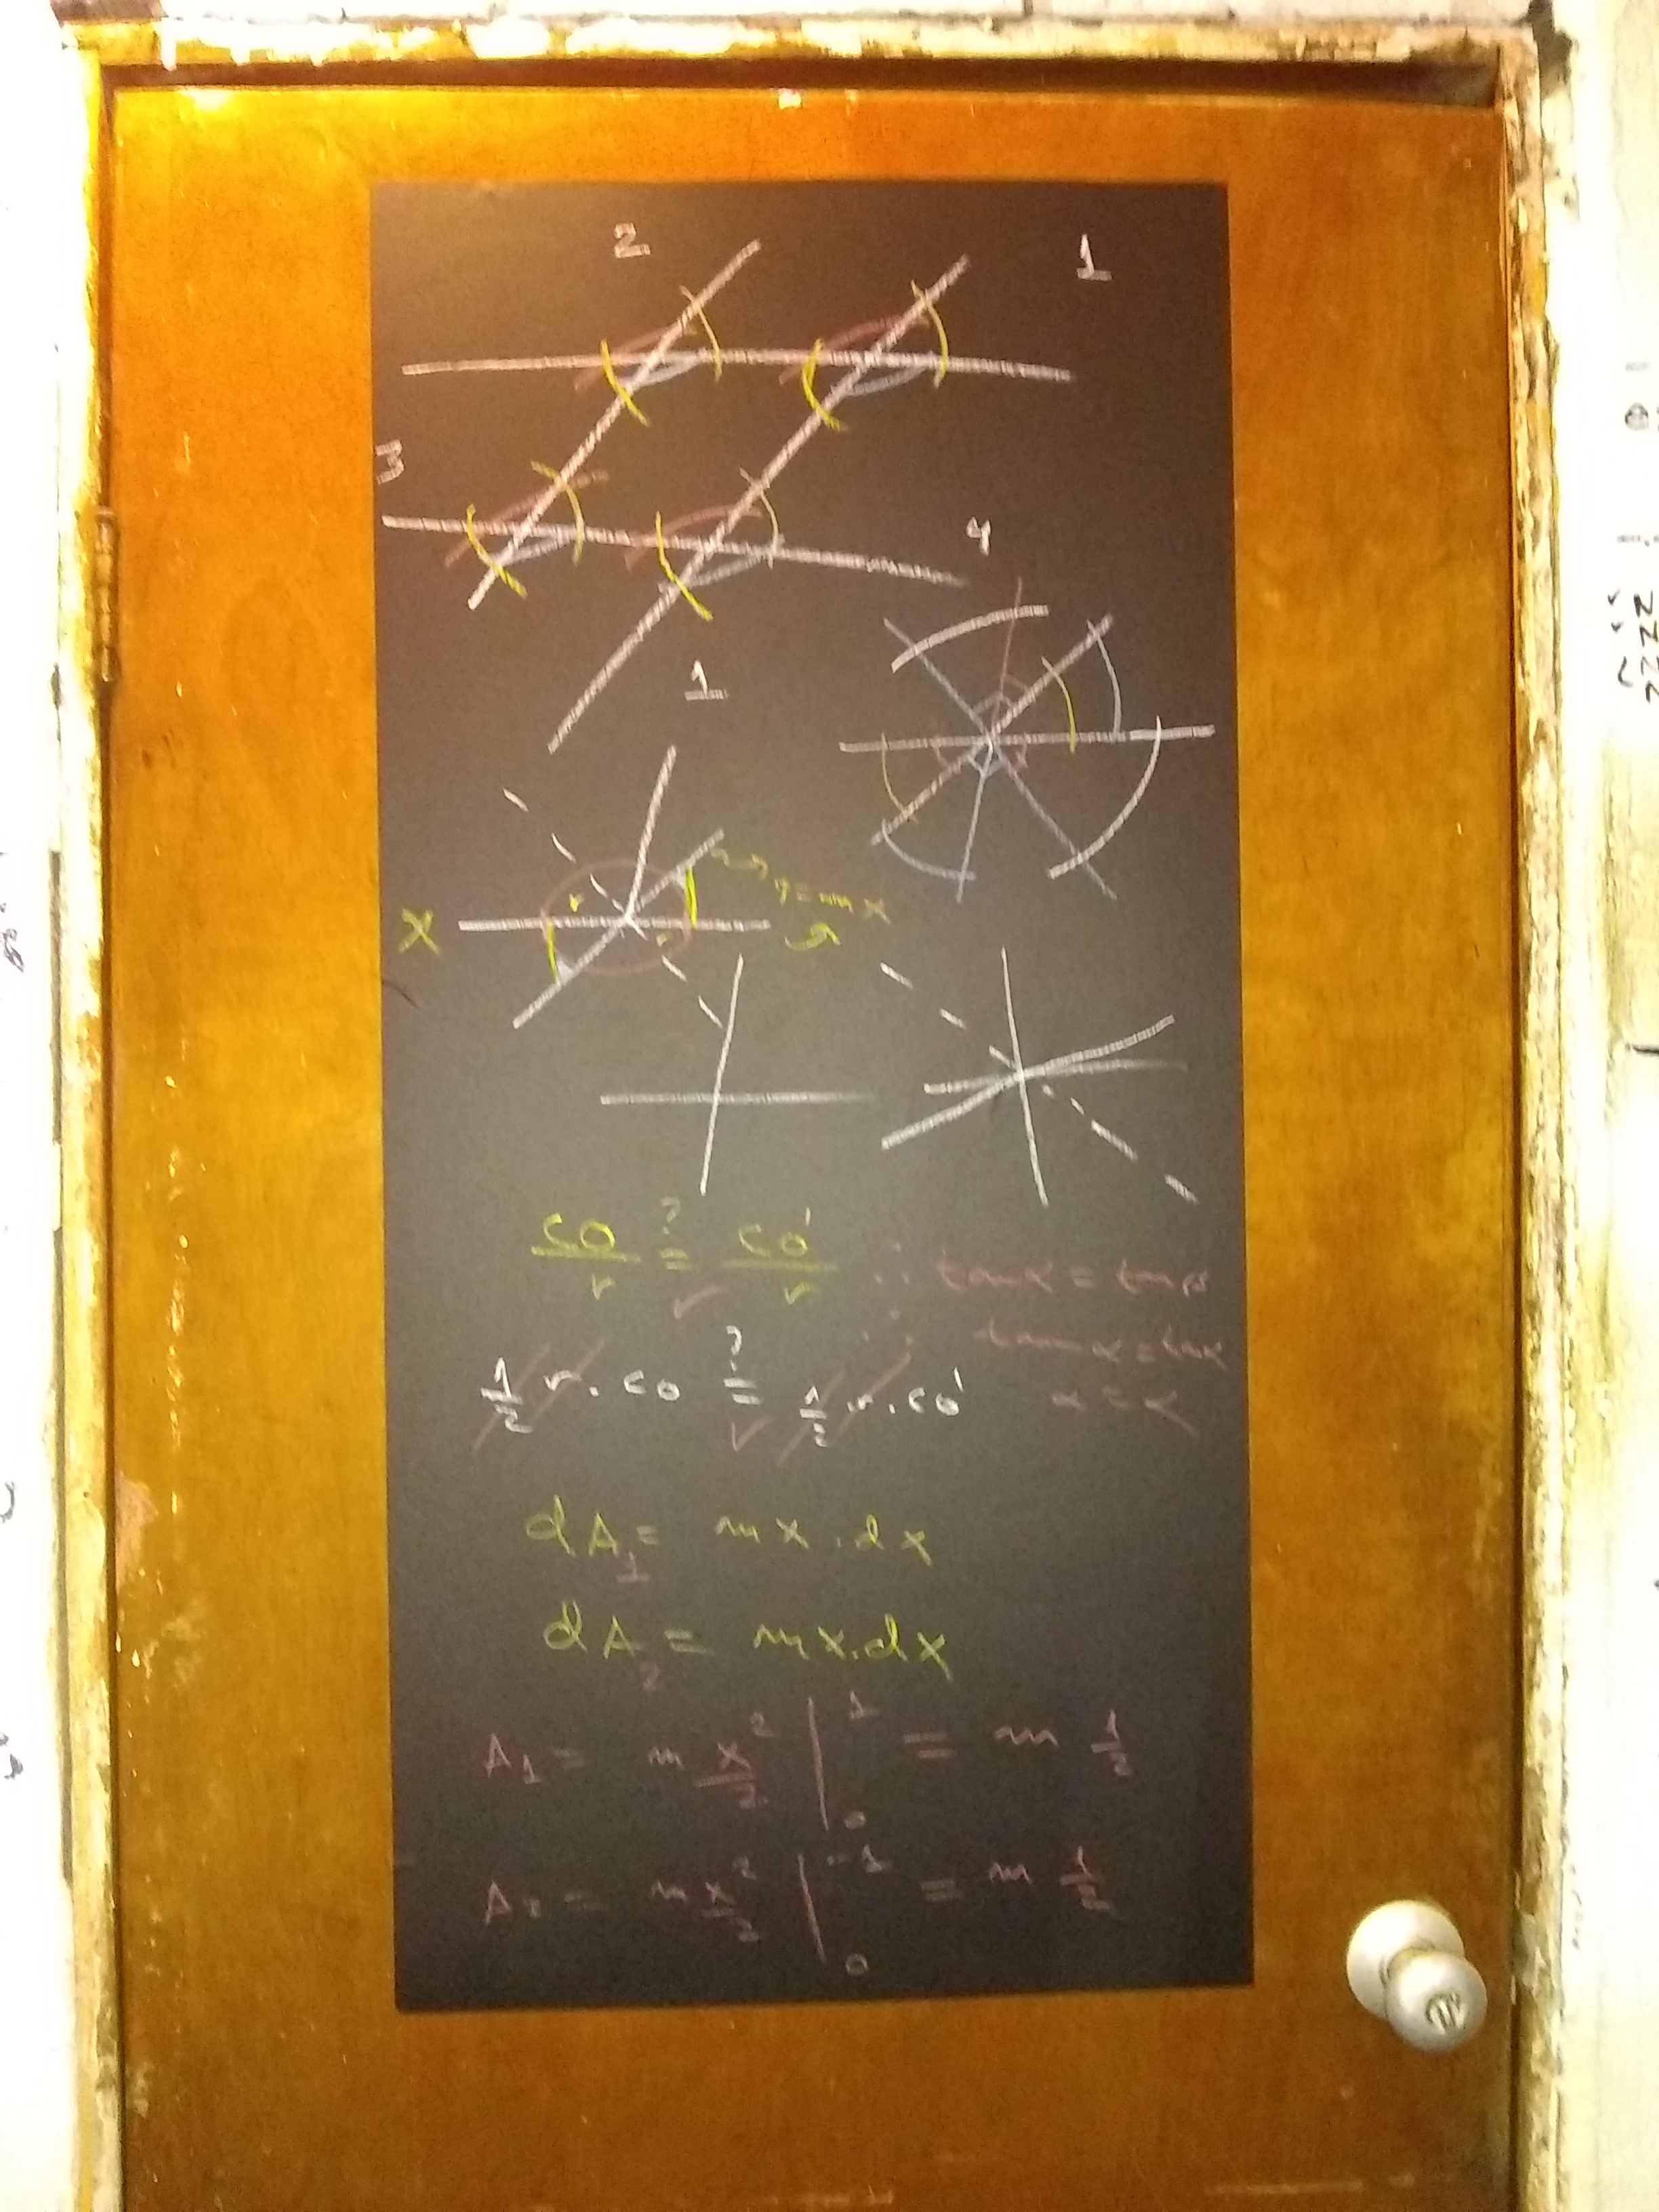 2 1
3
4
1
y = mx
X
r
r
co/r ?= co'/r ∴ tan α = tan β
∴ tan α = tan α
1/2 r . co ?= 1/2 r . co' α = α
dA₁ = mx . dx
dA₂ = mx . dx
A₁ = m x²/2 |₀¹ = m 1/2
A₂ = m x²/2 |₀⁻¹ = m 1/2